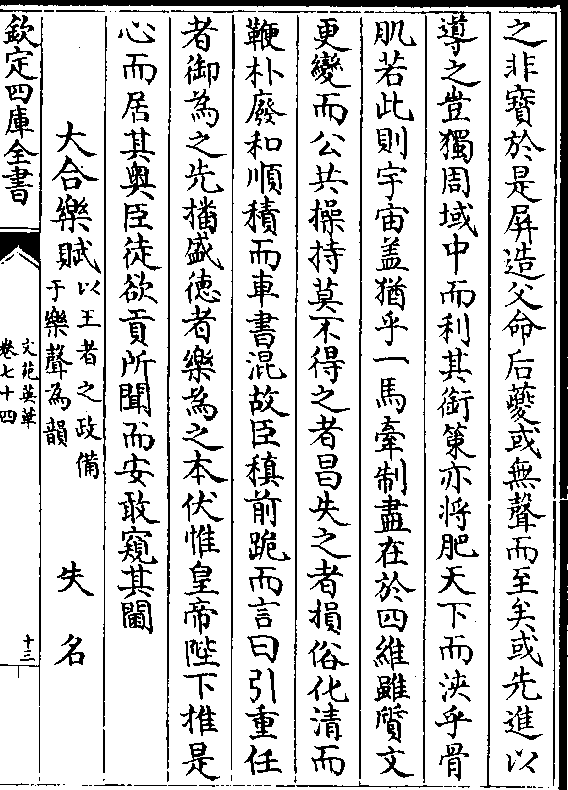 之非寶於是屏造父命后夔或無聲而至矣或先進以
導之豈獨周域中而利其銜策亦將肥天下而浹乎骨
肌若此則宇宙盖猶乎一馬牽制盡在於四維雖質文
更變而公共操持莫不得之者昌失之者損俗化清而
鞭朴廢和順積而車書混故臣稹前跪而言曰引重任
者御為之先播盛德者樂為之本伏惟皇帝陛下推是
心而居其奥臣徒欲貢所聞而安敢窺其閫
大合樂賦以王者之政備
于樂聲為韻
失名
欽定四庫全書
文苑英華
卷七十四
十三